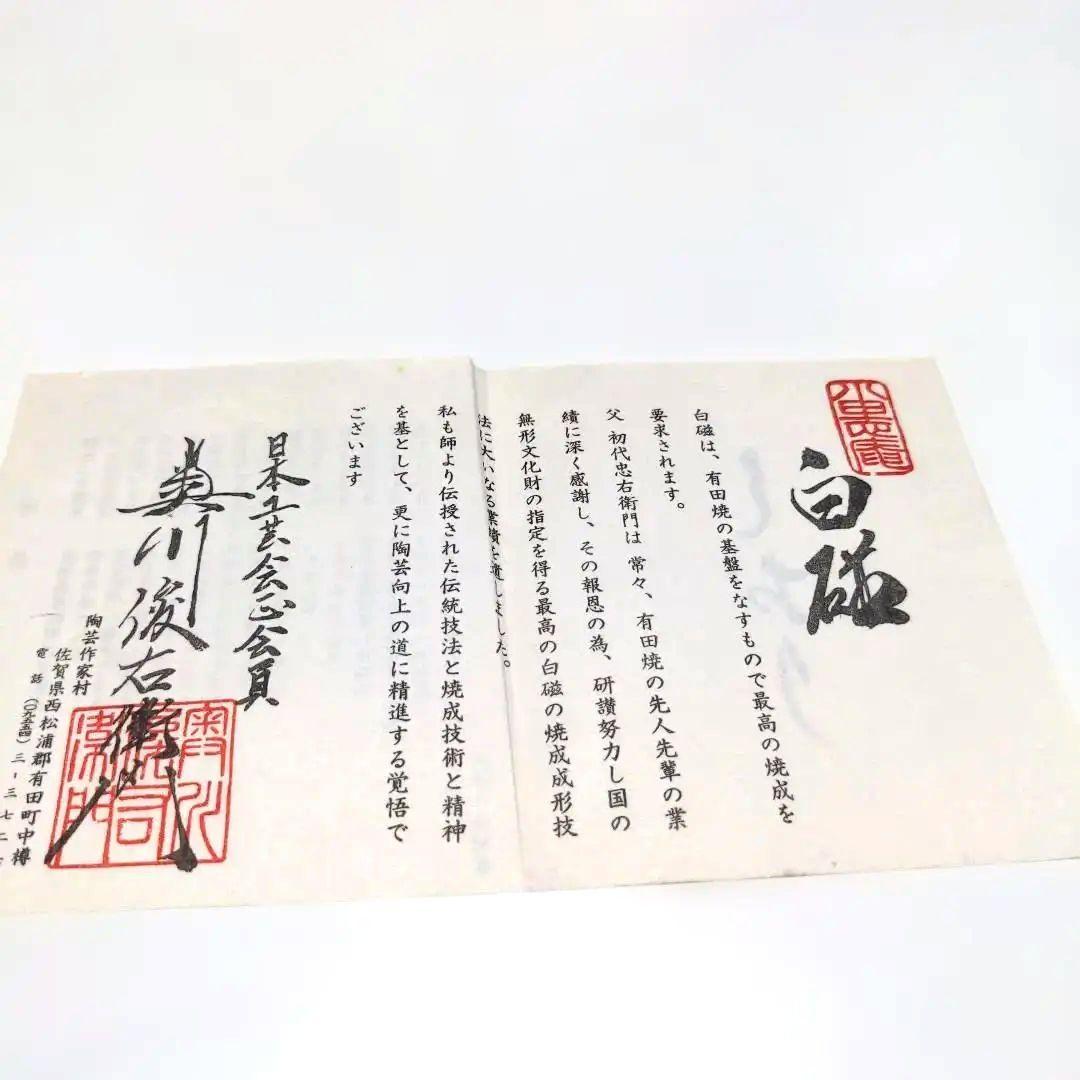 白磁
白磁は、有田焼の基盤をなすもので最高の焼成を
要求されます。
父 初代忠右衛門は 常々、有田焼の先人先輩の業
績に深く感謝し、その報恩の為、研讃努力し国の
無形文化財の指定を得る最高の白磁の焼成成形技
法に大いなる業績を遺しました。
私も師より伝授された伝統技法と焼成技術と精神
を基として、更に陶芸向上の道に精進する覚悟で
ございます
日本工芸会正会員
川俊右衛門
陶芸作家村
佐賀県西松浦郡有田町中樽
電話(〇九五五四)三-三七二